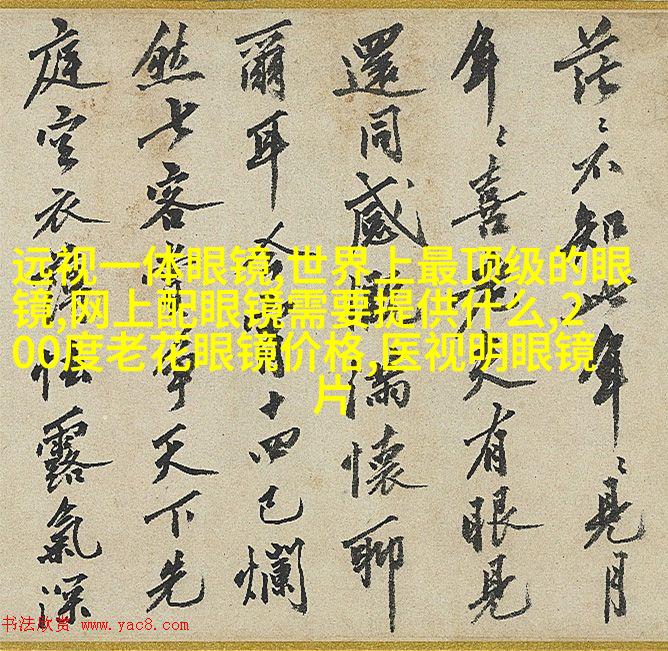 茫〻不知此年〻見月
年〻喜老大有眼見
還同感滿懷聊
爾耳十四已爛
然七客天下先
庭空衣怯露氣深
远视一体眼镜,世界上最顶级的眼
镜,网上配眼镜需要提供什么,2
00度老花眼镜价格,医视明眼镜
片
书法欣赏 www.yac8.com